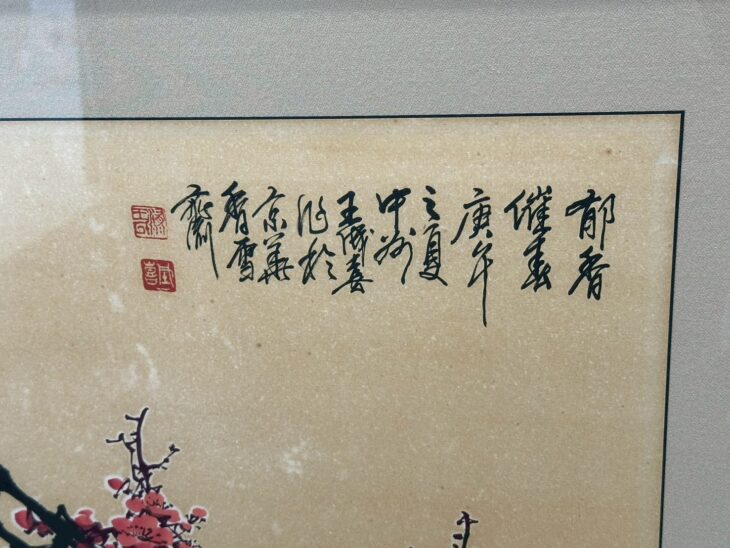 郁香
催春
庚午
之夏
中州
王成喜
作於
京華
香雪
齋